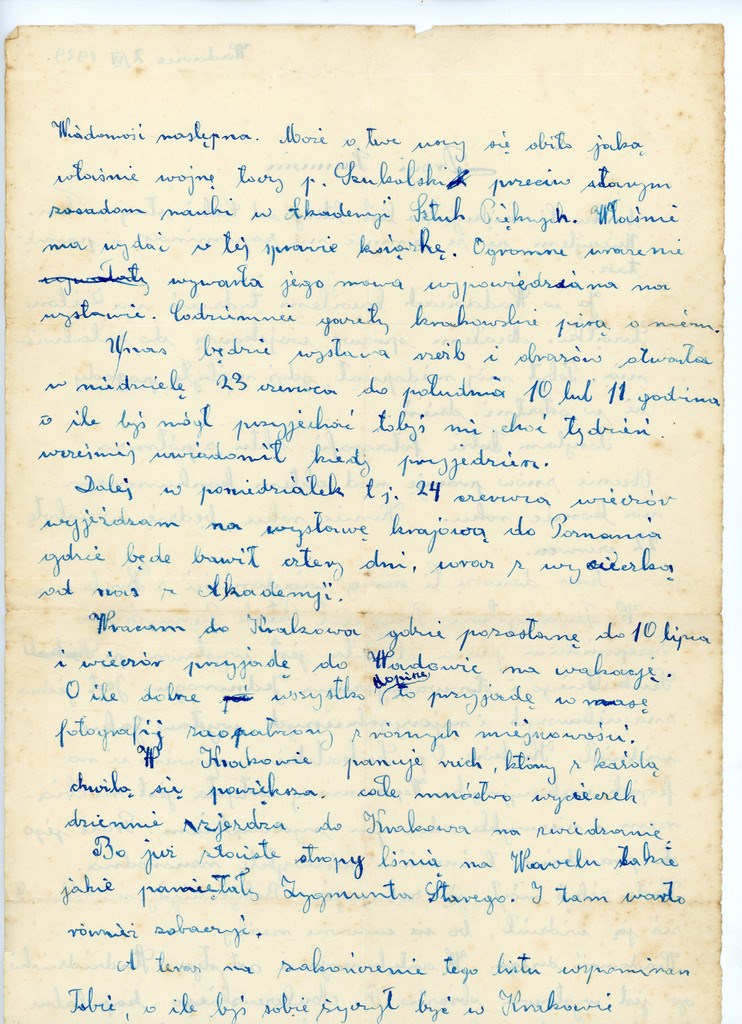 Wiadomość następna. Może o twe uszy się obiło jaką
właśnie wojnę toczy p. Szukalski przeciw starym
zasadom nauki w Akademji Sztuk Pięknych. Właśnie
ma wydać w tej sprawie książkę. Ogromne wrażenie
wywołały wywarła jego mowa wypowiedziana na
wystawie. Codzienneі gazety krakowskie piszą o niém.
U nas będzie wystawa rzeźb i obrazów otwarta
w niedzielę 23 czerwca do południa 10 lub 11 godzina
o ile byś mógł przyjechać tobyś mi choć tydzień
wcześniej uwiadomił kiedy przyjedziesz.
Dalej w poniedziałek t j. 24 czerwca wieczór
wyjeżdzam na wystawę krajową do Poznania
gdzie będe bawił cztery dni, wraz z wycieczką
od nas z Akademji.
Wracam do Krakowa gdzie pozostanę do 10 lipca
i wieczór przyjadę do Wadowic na wakacje.
O ile dobrze wszystko dopisze to przyjadę w masę
fotografij zaopatrzony z różnych miejscowości.
W Krakowie panuje ruch, który z każdą
chwilą się powiększa. całe mnóstwo wycieczek
dziennie zjeżdza do Krakowa na zwiedzanie
Bo już złociste stropy lśnią na Wawelu takie
jakie pamiętały Zygmunta Starego. I tam warto
również zobaczyć.
A teraz na zakończenie tego listu wspominam
Tobie, o ile byś sobie życzył być w Krakowie